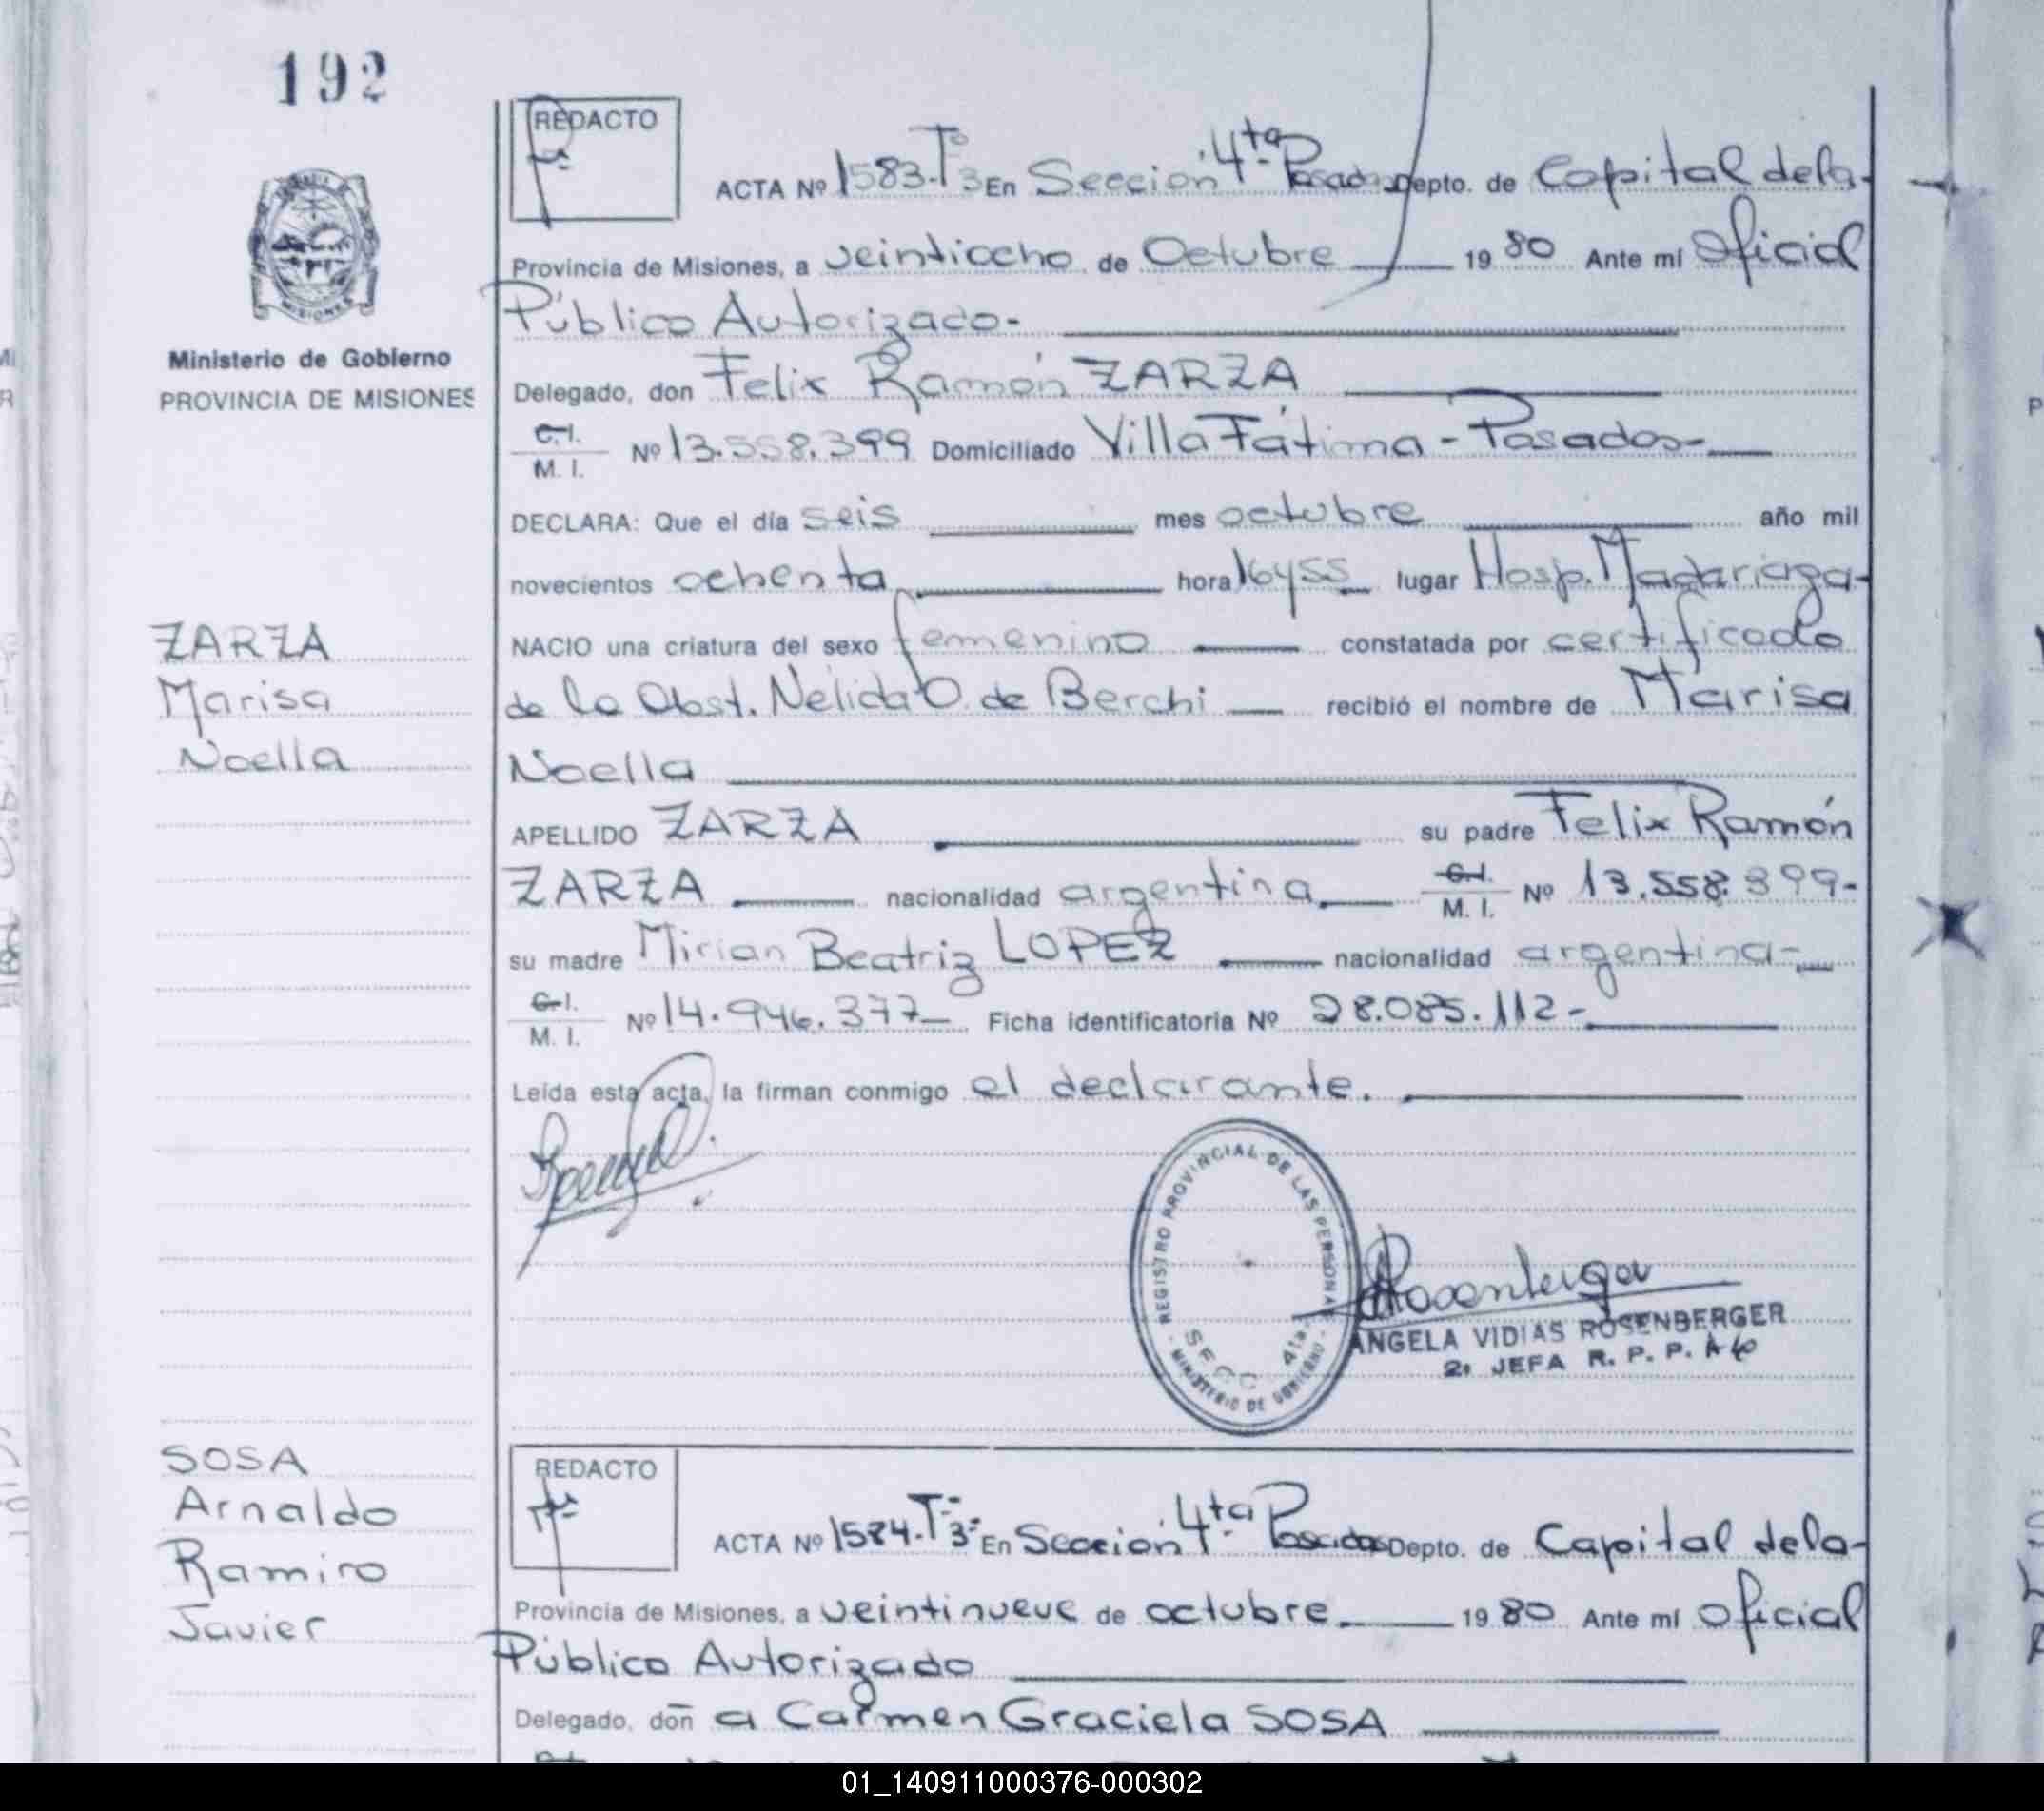 192
Ministerio de Gobierno
PROVINCIA DE MISIONES
REDACTO
ACTA Nº 1583-Tº3 En Sección 4ta Posadas Depto. de Capital de la-
Provincia de Misiones, a veintiocho de Octubre 1980 Ante mí Oficial
Público Autorizado-
Delegado, don Felix Ramón ZARZA
C.I.
M. I. Nº 13.558.399 Domiciliado Villa Fátima - Posadas-
DECLARA: Que el día seis mes octubre año mil
novecientos ochenta hora 16y55 lugar Hosp. Madariaga-
ZARZA
Marisa
Noella
NACIO una criatura del sexo femenino constatada por certificado
de la Obst. Nélida O. de Berchi recibió el nombre de Marisa
Noella
APELLIDO ZARZA su padre Felix Ramón
ZARZA nacionalidad argentina C.I.
M. I. Nº 13.558.399-
su madre Mirian Beatriz LOPEZ nacionalidad argentina-
C.I.
M. I. Nº 14.946.377- Ficha identificatoria Nº 28.085.112-
Leída esta acta, la firman conmigo el declarante.
REGISTRO PROVINCIAL DE LAS PERSONAS
SECC 4ta
- MINISTERIO DE GOBIERNO -
Rosenberger
ANGELA VIDIAS ROSENBERGER
2ª JEFA R. P. P.
SOSA
Arnaldo
Ramiro
Javier
REDACTO
ACTA Nº 1584-Tº3º En Sección 4ta Posadas Depto. de Capital de la-
Provincia de Misiones, a veintinueve de octubre 1980 Ante mí Oficial
Público Autorizado
Delegado, don a Carmen Graciela SOSA
01_140911000376-000302